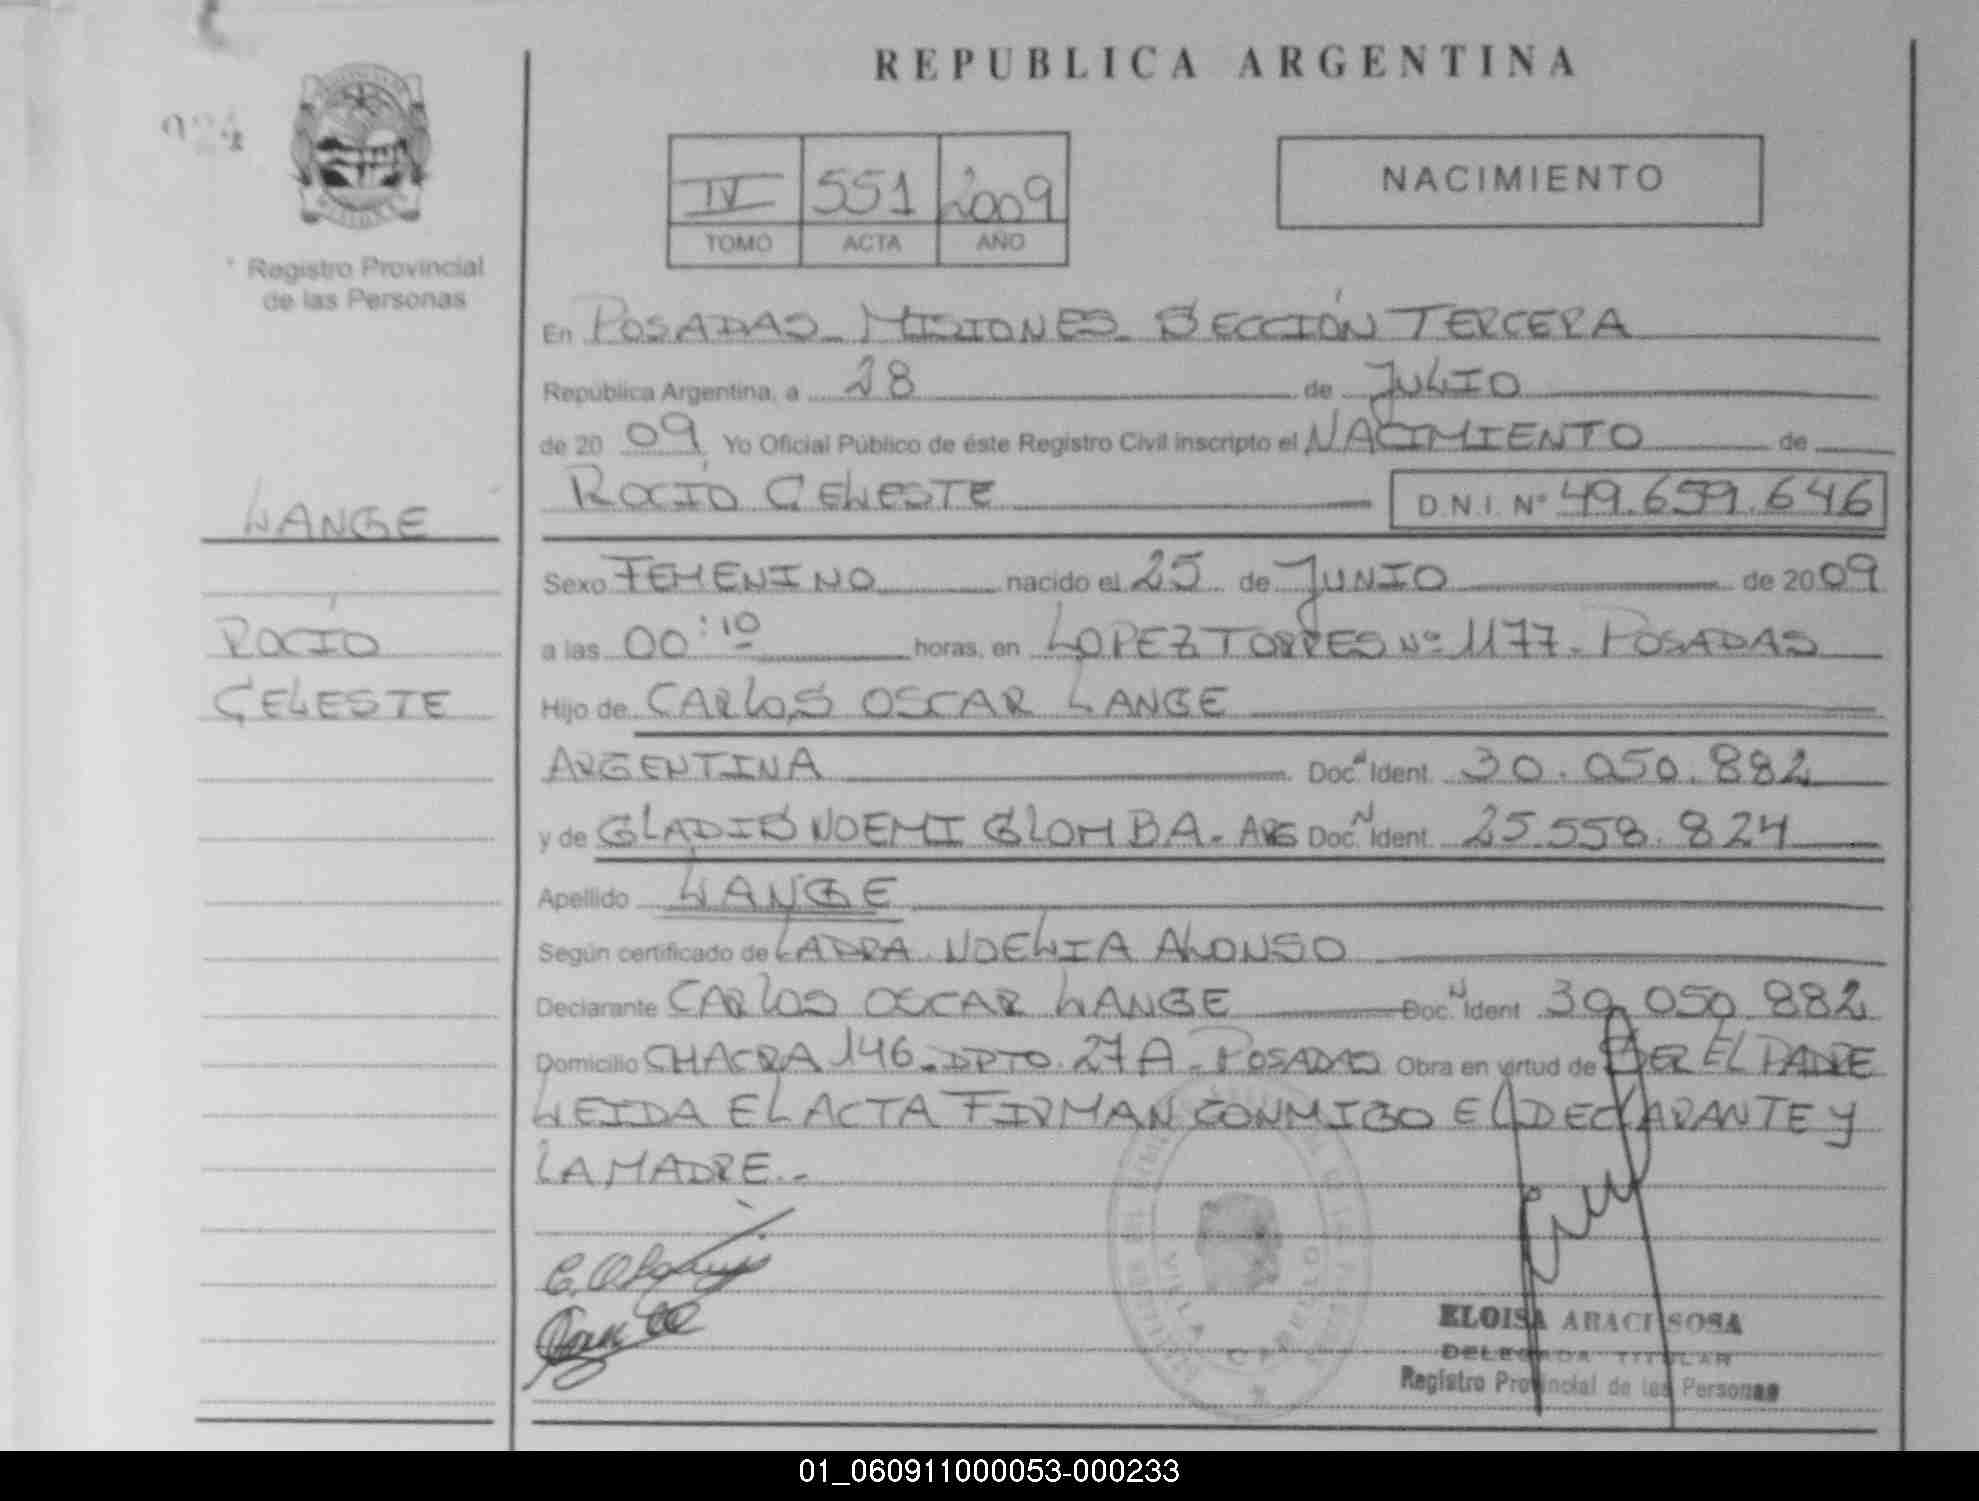 REPUBLICA ARGENTINA
924
IV 551 2009
TOMO ACTA AÑO
NACIMIENTO
Registro Provincial
de las Personas
En POSADAS - MISIONES - SECCIÓN TERCERA
República Argentina, a 28 de JULIO
de 20 09 Yo Oficial Público de éste Registro Civil inscripto el NACIMIENTO de
ROCÍO CELESTE D.N.I. Nº 49.659.646
LANGE
ROCÍO
CELESTE
Sexo FEMENINO nacido el 25 de JUNIO de 2009
a las 00:10 horas, en LOPEZ TORRES Nº 1177 - POSADAS
Hijo de CARLOS OSCAR LANGE
ARGENTINA Doc. N Ident. 30.050.882
y de GLADIS NOEMI GLOMBA - ARG Doc. N Ident. 25.558.824
Apellido LANGE
Según certificado de LA DRA. NOELIA ALONSO
Declarante CARLOS OSCAR LANGE Doc. N Ident 30.050.882
Domicilio CHACRA 146 - DPTO. 27 A - POSADAS Obra en virtud de SER EL PADRE
LEIDA EL ACTA FIRMAN CONMIGO EL DECLARANTE Y
LA MADRE.-
VILLA CABELLO
ELOISA ARACI SOSA
DELEGADA TITULAR
Registro Provincial de las Personas
01_060911000053-000233